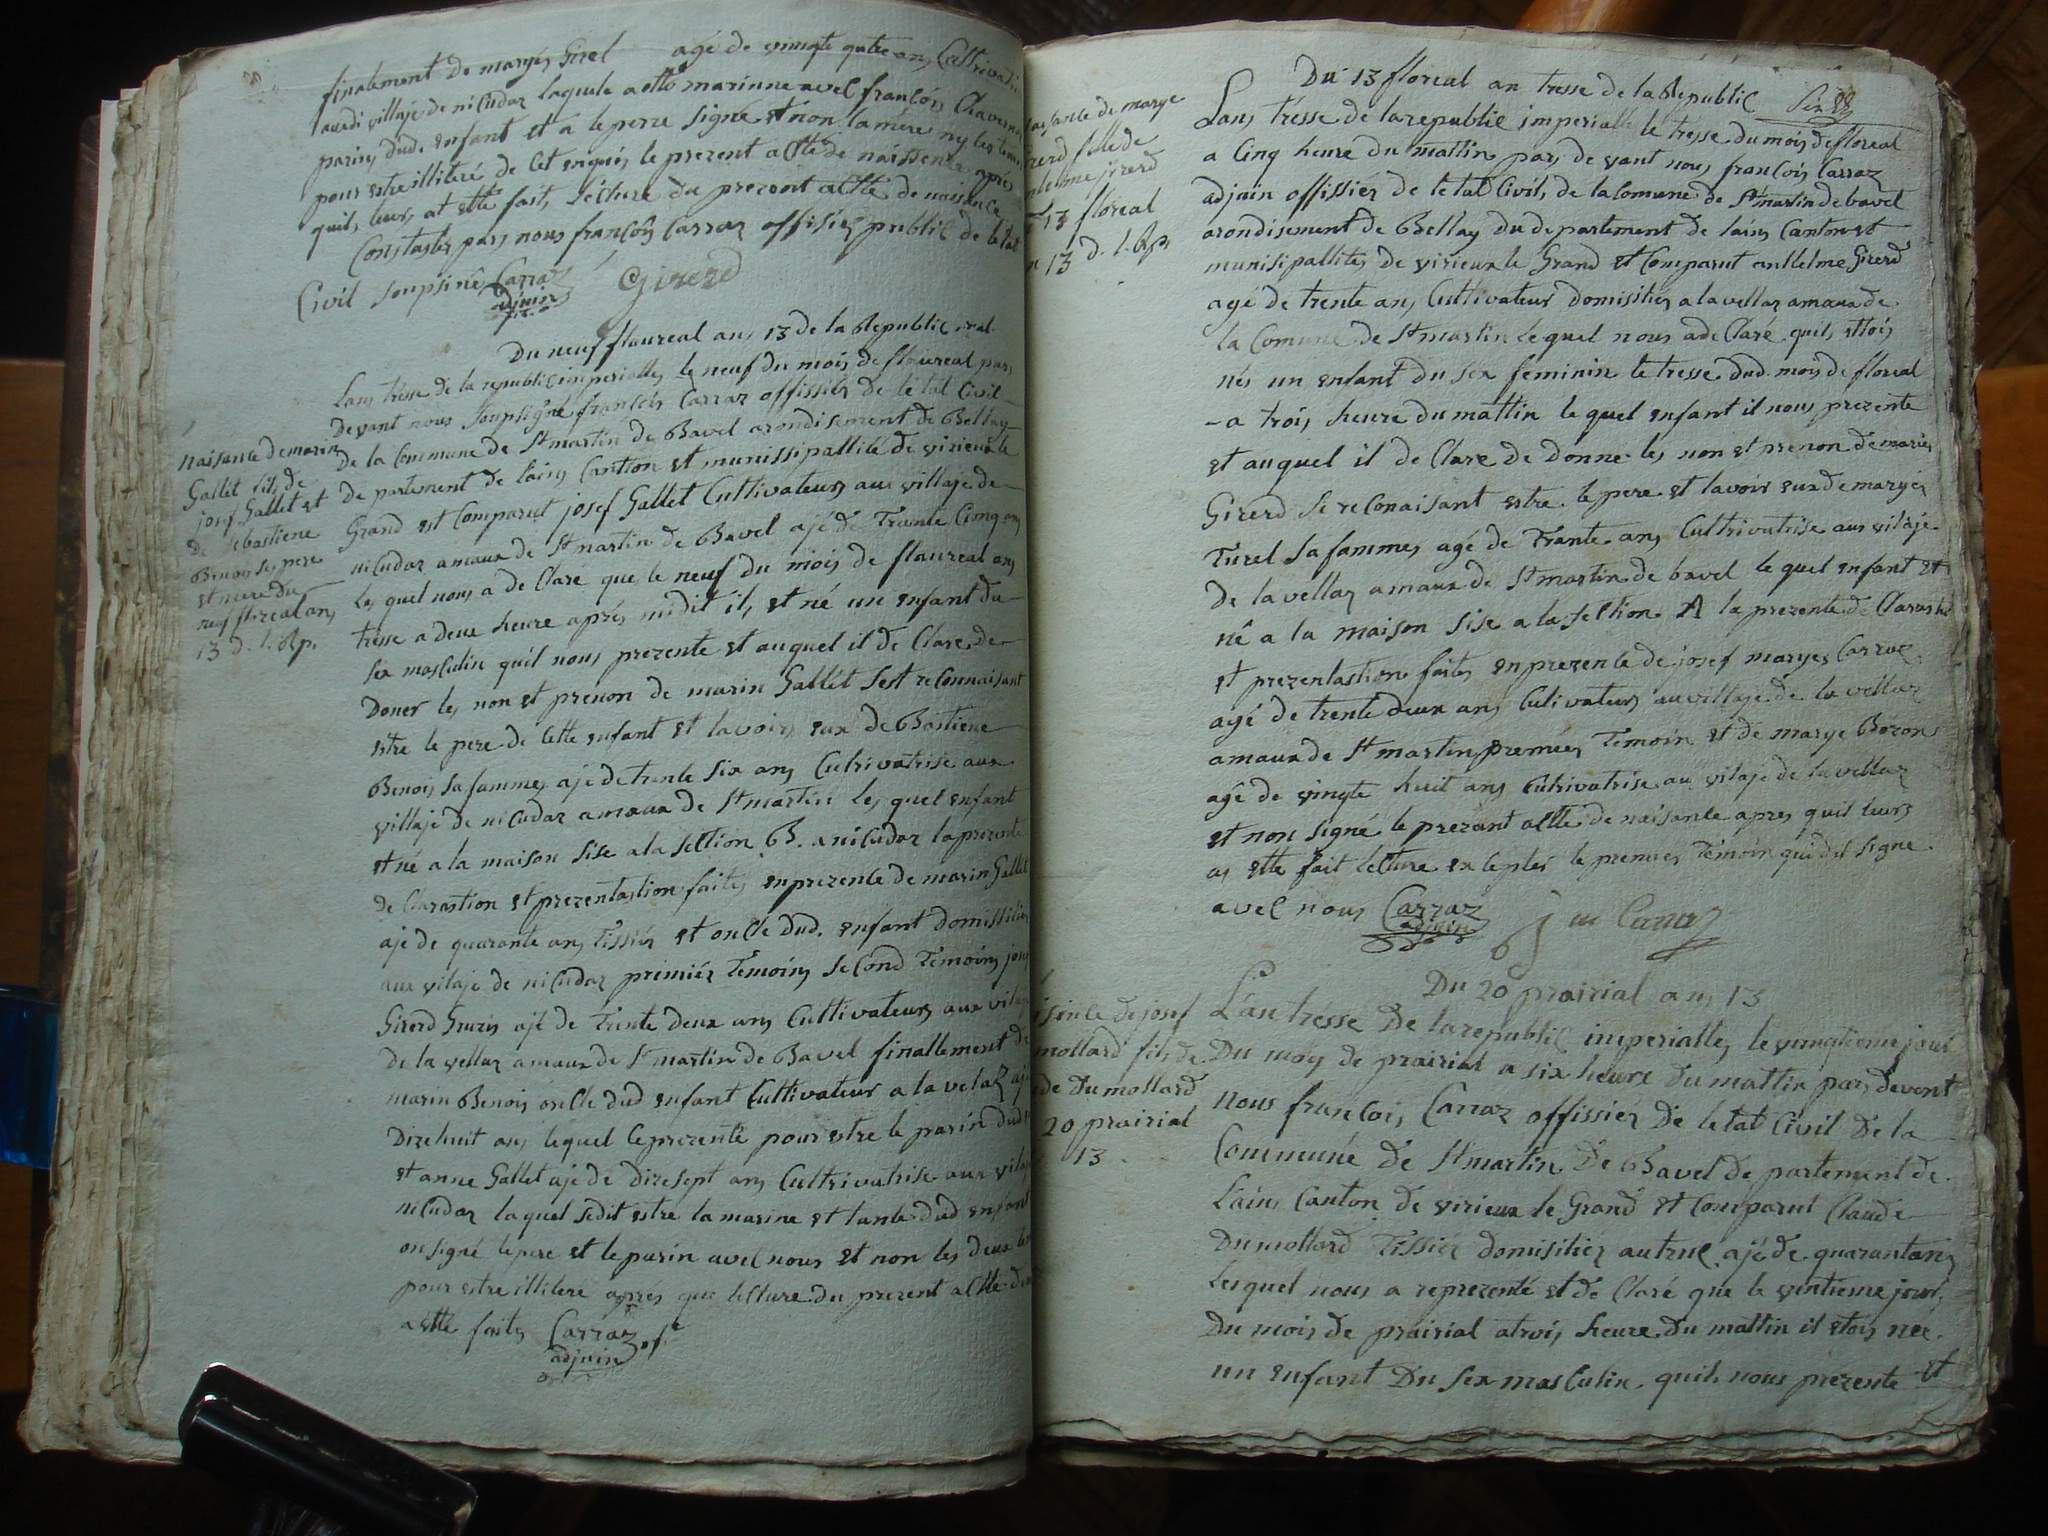 finalement de maryés Girel agé de vingte qatre ans Cultrivatri
audi villaje de niCudaz laquele a etto marinne avel françois Claverna
parins dud. enfant et a le perre signé et non la mére ny les temoi
pour estre illiteré de Cet enquis le prezent actte de naissence apres
quils leurs at ette fait, lécture du prezont actte de naissence
Constastés pars nous françois Carraz offisiér public de letat
Civil soupsiné Carraz Girerd
adjuin
Du neuf flaureal ans 13 de la Republic
Lans trèsse de la republic imperialles le neuf du mois de flaureal pars
devant nous soupsigné françois Carraz offissiér de le tat Civil
de la Commune de St martin de Bavel arondisement de Bellay
de partement de lains Canton et munissipallité de virieux le
Grand est Comparut josef Gallet Cultivateurs aux villaje de
niCudaz amaux de St martin de Bavel ajé de Trante Cinq ans
les quel nous a de Claré que le neuf du mois de flaureal ans
trèsse a deux heure aprés midit il, et né un enfant du
sex masculin quil nous prezente et auquel il de Clare de
Doner les non et prenon de marin Gallét sest reConnaisant
estre le pere de Cette enfant et lavoirs eux de Bastiene
Benois sa fammes ajé de trente six ans Cultrivatrise aux
villaje de niCudaz amaux de St martin les quel enfant
et né a la maison sise a la section B. a niCudaz la prézente
de Clarastion et prezentastion faites en prezente de marin Gallet
ajé de quarante ans Tissiér et oncle dud. enfant domissiliés
aux vilaje de niCudaz primiér Temoins seCond Temoins josef
Girerd ajé de Trente deux ans Cultivateurs aux vilaje
de la vellaz amaux de St martin de Bavel finallement de
marin Benois oncle dud enfant Cultivateur a la velaz ajé
Dixehuit ans lequel se prezenté pour estre le parin dud
et anne Gallet ajé de dixesept ans Cultrivatrise aux vilaje
niCudaz laquel sedit estre la marine et tante dud enfant
on signé le pere et le parin avec nous et non les deux
pour estre illiteré aprés que lecture du prezent actte de
a ette faites Carraz of.
adjuin
naisante de marin
Gallét fils de
josef Gallet et
de sebastiene
Benois ses pere
et mere du
neuf floreal ans
13 d. l. Rp.
Du 13 floreal an tresse de la Republic
Lans trésse de la republic imperialle le tresse du mois de floreal
a Cinq heure du mattin pars de vant nous françois Carraz
adjuin offissiér de le tat Civils de la Comune de St martin de bavel
arondisement de Bellay du departement de lains Canton et
munisipallités de virieux le Grand et Comparut antlelme Girerd
agé de trente ans Cultivateurs domisiliés a la vellaz amaux de
la Comune de St martin lequel nous a de Claré quils ettois
nés un enfant du sex feminin le tresse dud. mois de floreal
a trois heure du mattin le quel enfant il nous prezente
et auquel il de Clare de donné les non et prenon de maries
Girerd se reConaisant estre le pere et lavoir eux de maryés
Turel sa fammes agé de Trante ans Cultrivatrise aux vilaje
de la vellaz amaux de St martin de bavel le quel enfant et
né a la maison sise a la section A la prezente de Clarasti
et prezentastion faites en prezente de josef maryes Carraz
agé de trente deux ans Cultivateurs au villaje de la vellaz
amaux de St martin premiés Temoin et de marye Bozons
agé de vingte huit ans Cultrivatrise au vilaje de la vellaz
et non signé le prezant actte de naisante apres quil leurs
as ette fait lecture exseptes le premies Temoin qui dit signe
avec nous Carraz j m Carraz
adjuin
naisante de marye
Girerd fille de
antlelme girerd
13 floreal
13 d. l. Rp.
Du 20 prairial ans 13
L'an trésse De la republic imperialles le vingtieme jour
Du mois de prairial a six heure du mattin pars devent
nous françois Carraz offissiér de le tat Civil de la
Commune de St martin de Bavel de partement de
l'ains Canton de virieux le Grand et Comparut Claude
Dumollard Tissiér domisiliéz autruc ajé de quarantans
lesquel nous a reprezenté et de Claré que le vintieme jour
Du mois de prairial atrois heure du mattin il etois nee
un enfant Du sex masculin. quils nous prezente et
naisante de josef
mollard fils de
de Dumollard
20 prairial
13